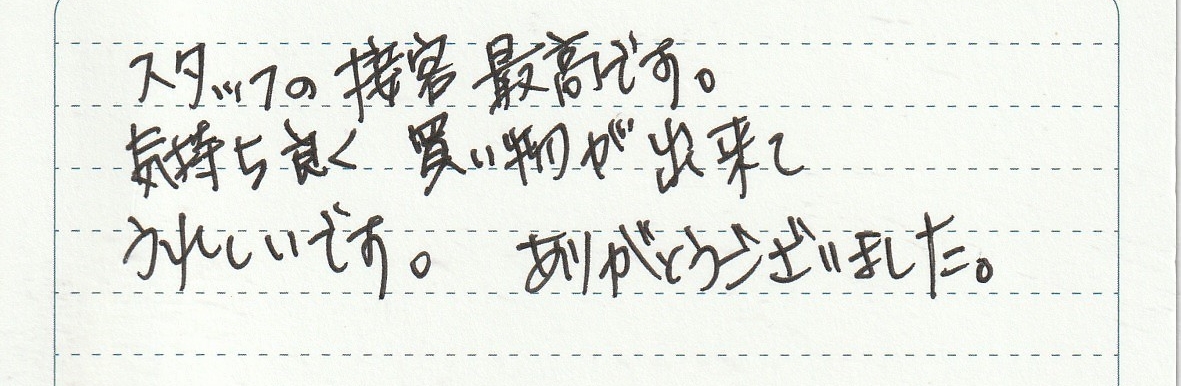 スタッフの接客最高です。
気持ち良く買い物が出来て
うれしいです。 ありがとうございました。